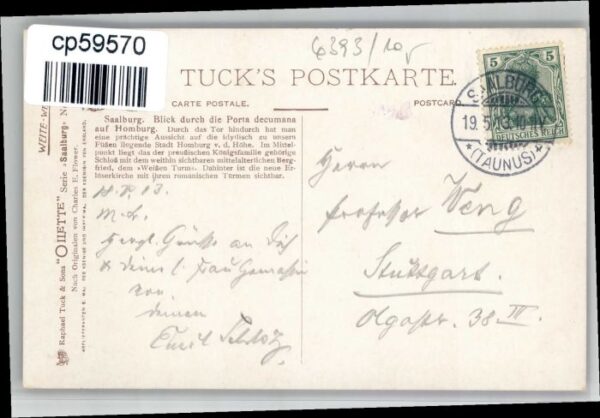 cp59570
6393/10
TUCK'S POSTKARTE.
CARTE POSTALE.
POSTCARD.
5 5
DEUTSCHES REICH
SAALBURG
19.5.13.
*(TAUNUS)*
WEITE-WE
Raphael Tuck & Sons "OILETTE" Serie "Saalburg" N
Nach Originalen von Charles E. Flower.
Saalburg. Blick durch die Porta decumana
auf Homburg. Durch das Tor hindurch hat man
eine prächtige Aussicht auf die idyllisch zu unsern
Füßen liegende Stadt Homburg v. d. Höhe. Im Mittel-
punkt liegt das der preußischen Königsfamilie gehörige
Schloß mit dem weithin sichtbaren mittelalterlichen Berg-
fried, dem »Weißen Turm«. Dahinter ist die neue Er-
löserkirche mit ihrem romanischen Türmen sichtbar.
13.
M. L.
Herzl. Grüße an Dich
& deine l. Frau Gemahlin
von
deinem
Emil
Herrn
Professor Weng
Stuttgart.
Olgastr. 38 III.